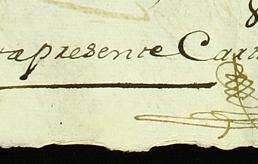 tapresente Cart